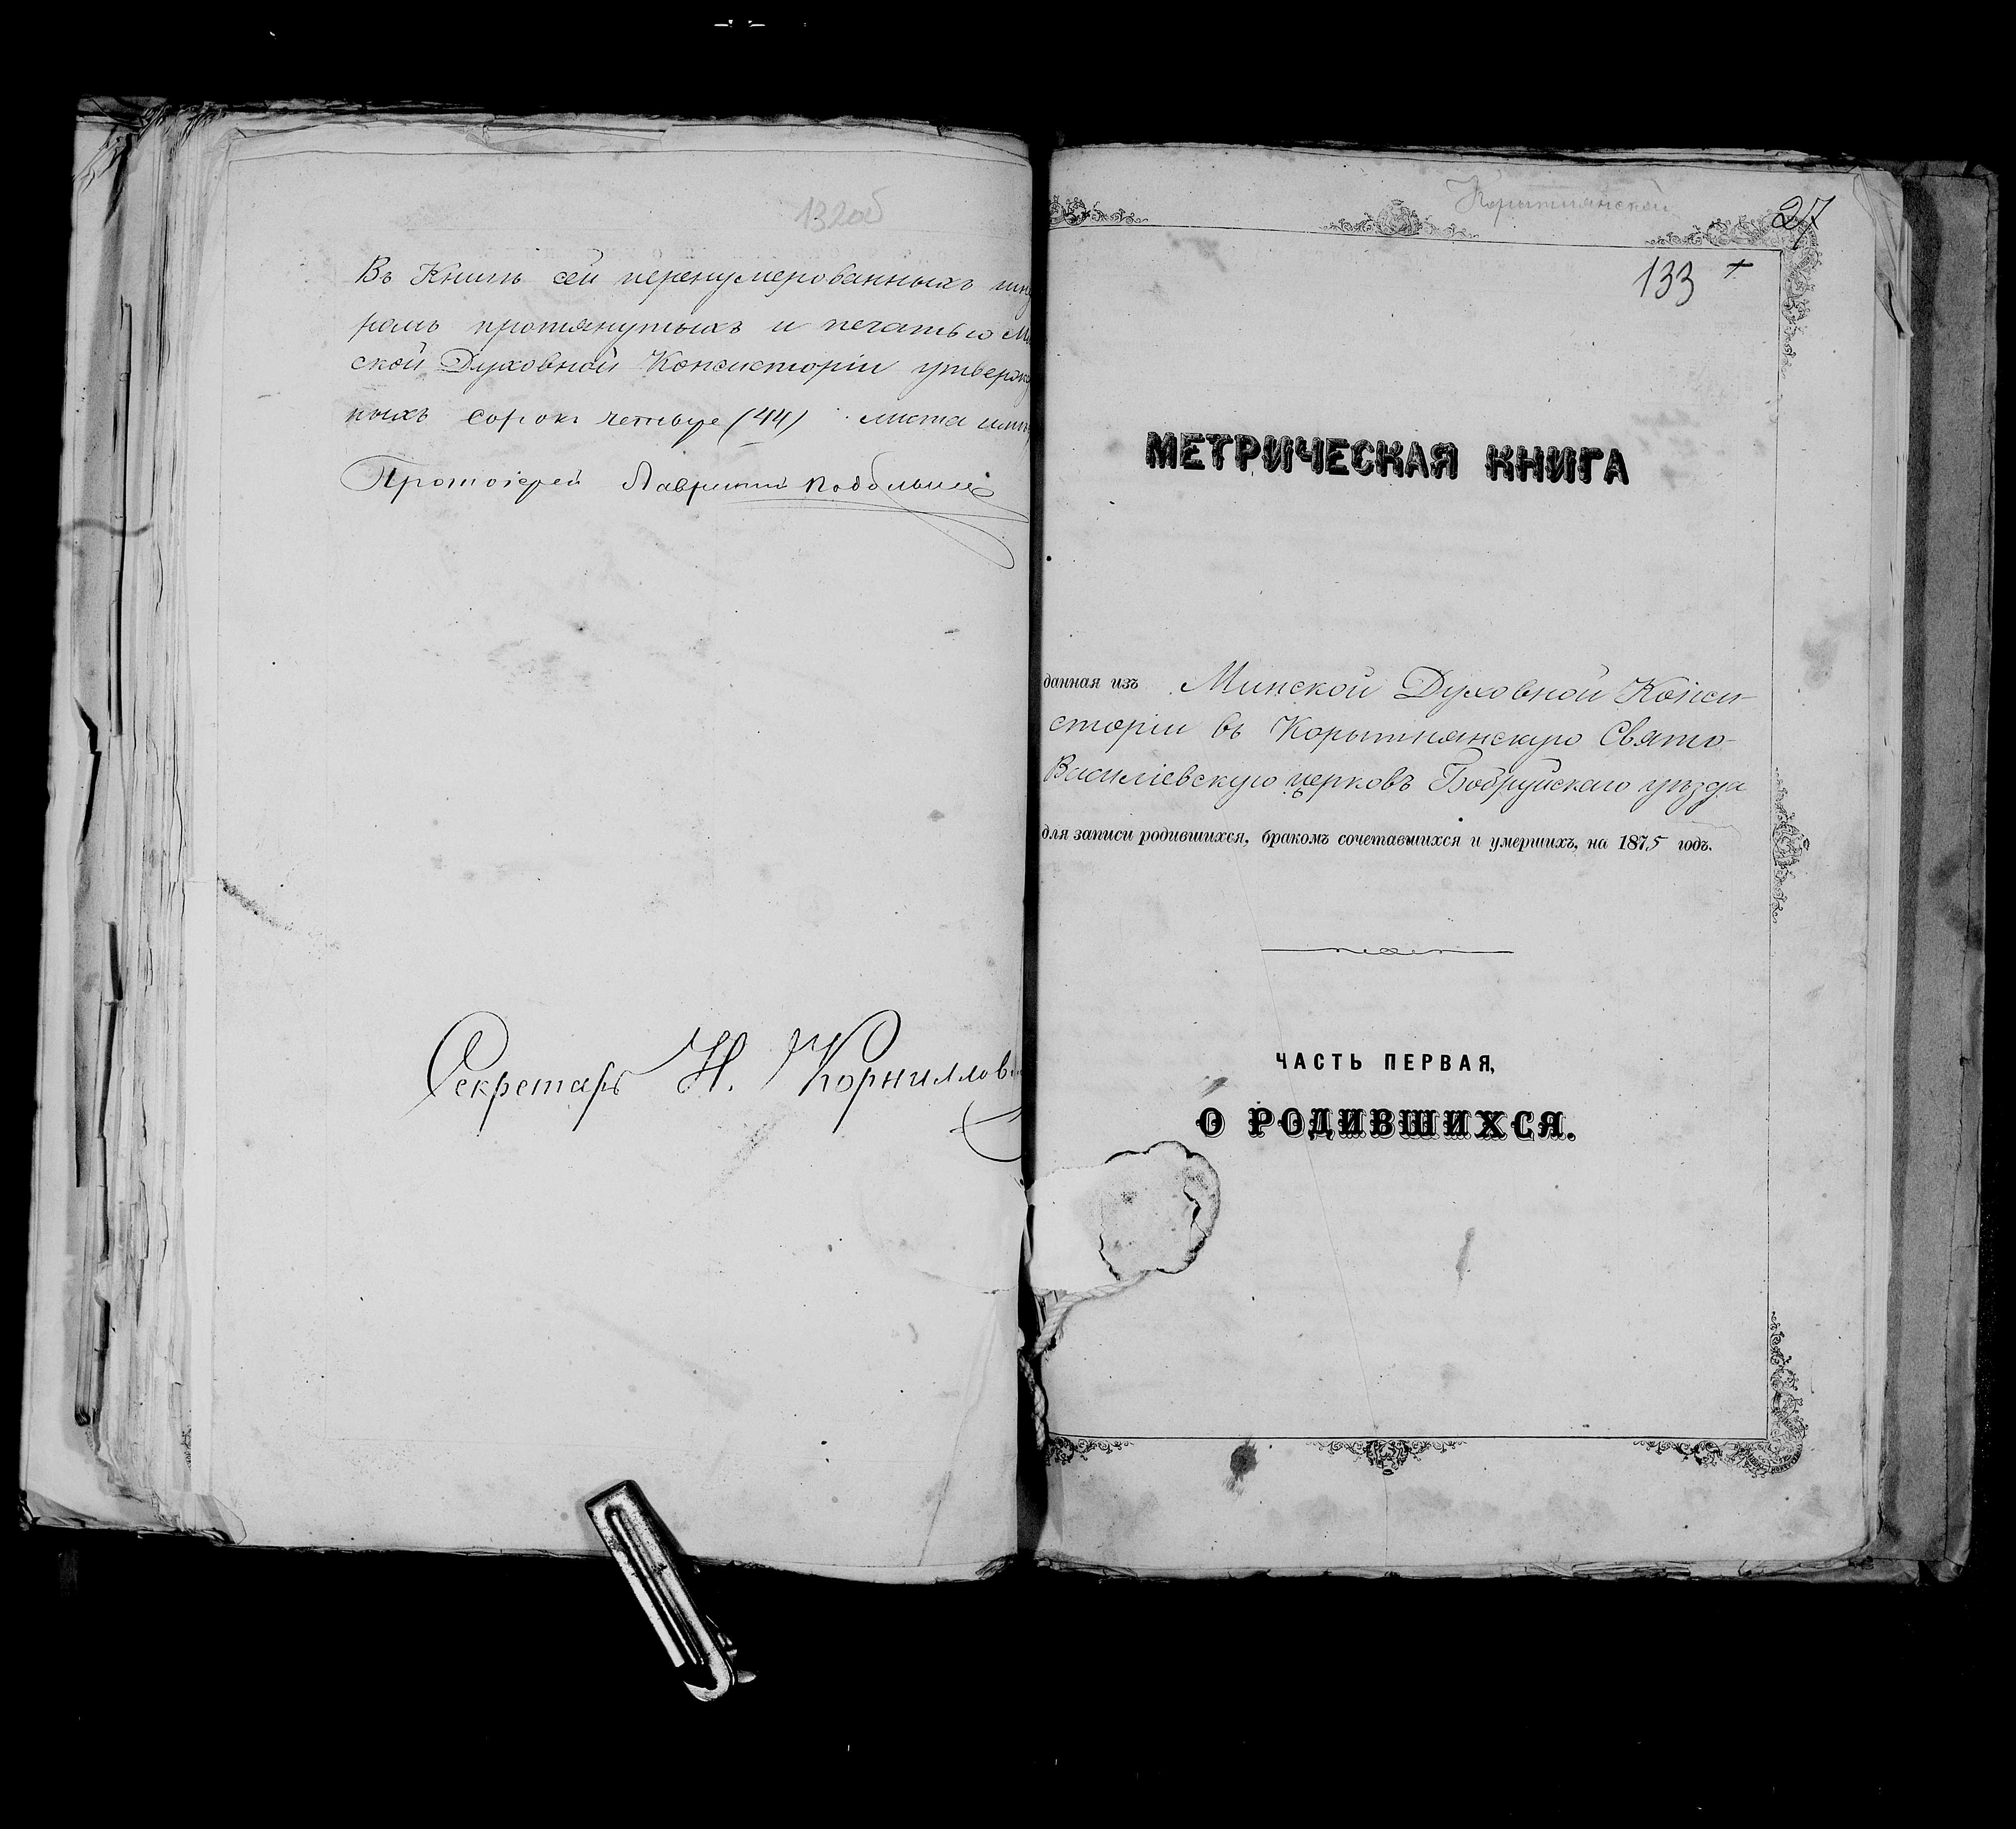 132об
Въ Книгѣ сей перенумерованныхъ шну
ромъ протянутыхъ и печатью Ми
ской Духовной Консисторіи утвержд
ныхъ сорокъ четыре (44) листа
Протоіерей Лаврентій
Секретарь Н. Корниллов
Корытнянской
27
133 +
МЕТРИЧЕСКАЯ КНИГА
данная изъ Минской Духовной Конси-
сторіи въ Корытнянскую Свято-
Василіевскую церковъ Бобруйскаго уѣзда
для записи родившихся, бракомъ сочетавшихся и умершихъ, на 1875 годъ.
ЧАСТЬ ПЕРВАЯ,
О РОДИВШИХСЯ.